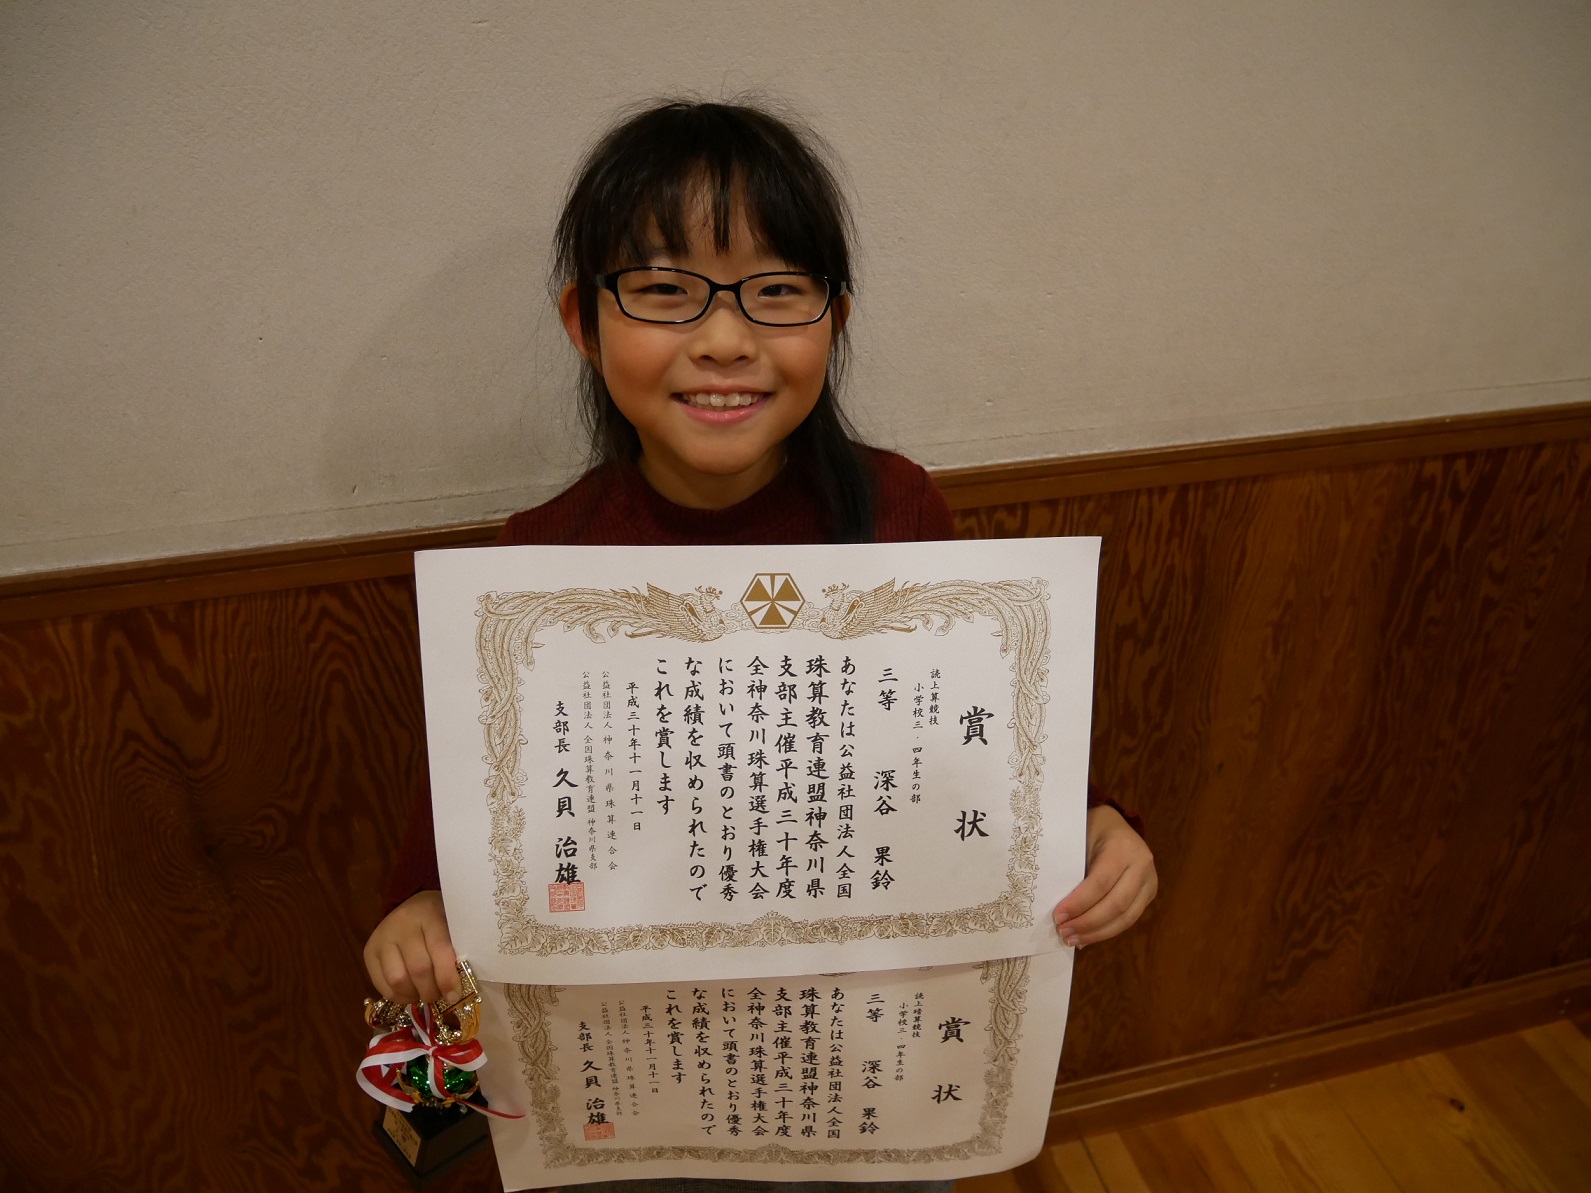 賞状
読上算競技
小学校三・四年生の部
三等 深谷 果鈴
あなたは公益社団法人全国
珠算教育連盟神奈川県
支部主催平成三十年度
全神奈川珠算選手権大会
において頭書のとおり優秀
な成績を収められたので
これを賞します
平成三十年十一月十一日
公益社団法人 神奈川県珠算連合会
公益社団法人 全国珠算教育連盟 神奈川県支部
支部長 久貝 治雄
賞状
読上暗算競技
小学校三・四年生の部
三等 深谷 果鈴
あなたは公益社団法人全国
珠算教育連盟神奈川県
支部主催平成三十年度
全神奈川珠算選手権大会
において頭書のとおり優秀
な成績を収められたので
これを賞します
平成三十年十一月十一日
公益社団法人 神奈川県珠算連合会
公益社団法人 全国珠算教育連盟 神奈川県支部
支部長 久貝 治雄